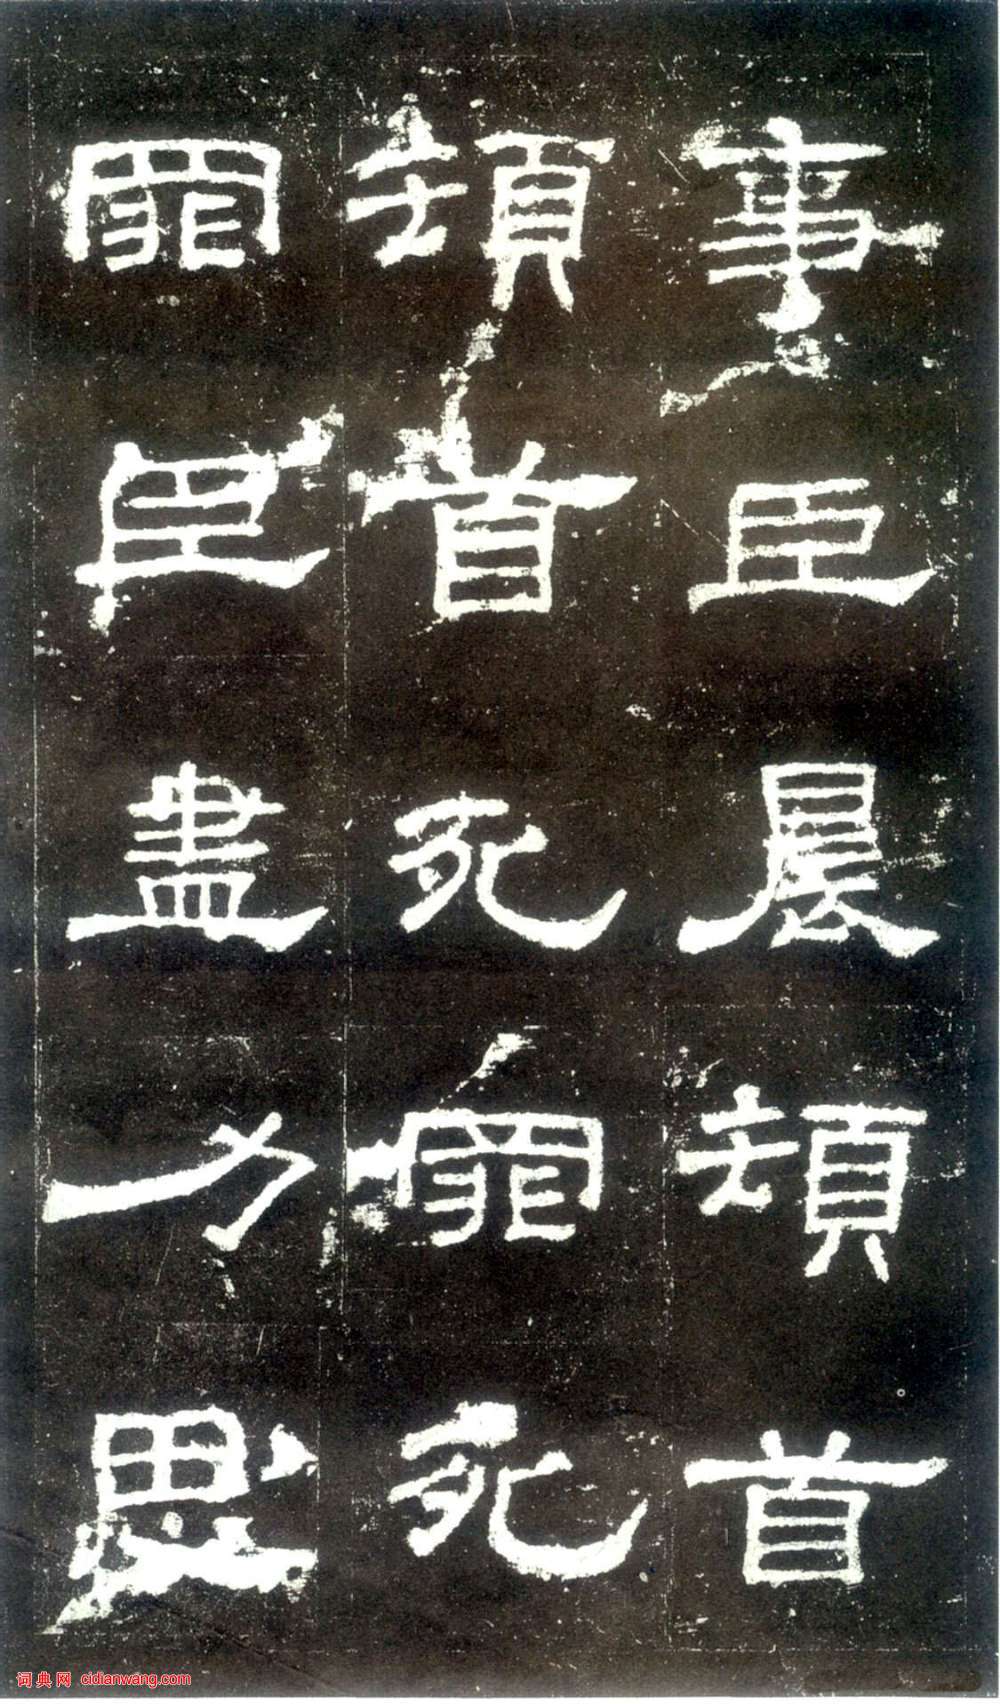 事臣晨頓首
頓首死罪死
罪臣盡力思
词典网 cidianwang.com